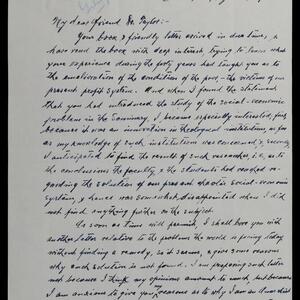 My dear friend Mr. Taylor:-
Your book & friendly letter arrived in due time, &
have read the book with deep interest, trying to learn what
your experience during the forty years had taught you as to
the amelioration of the condition of the poor - the victims of our
present profit system. And when I found the statement
that you had introduced the study of the social-economic
problems in the Seminary, I became especially interested, first,
because it was an innovation in theological institutions, as far
as my knowledge of such institutions was concerned &, secondly
I anticipated to find the results of such researches, i.e., as to
the conclusions the faculty & the students had reached re-
garding the solution of our present chaotic social-economic
system, & hence was somewhat disappointed when I did
not find anything further on the subject.
As soon as time will permit I shall favor you with
another letter relative to the problems the world is facing today
without finding a remedy, so it seems, & give some reasons
why such solution is not found. I am proposing such letter
not because I think my opinions amount to much, but because
I am anxious to give you reasons as to why